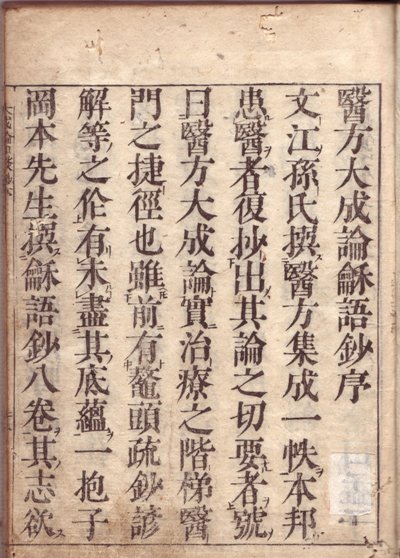 醫方大成論龢語鈔序
文江孫氏撰醫方集成一帙本邦
患醫者復抄出其論之切要者號
曰醫方大成論實治療之階梯醫
門之捷徑也雖前有鼇頭疏鈔諺
解等之伦有未盡其底蘊一抱子
岡本先生撰龢語鈔八卷其志欲